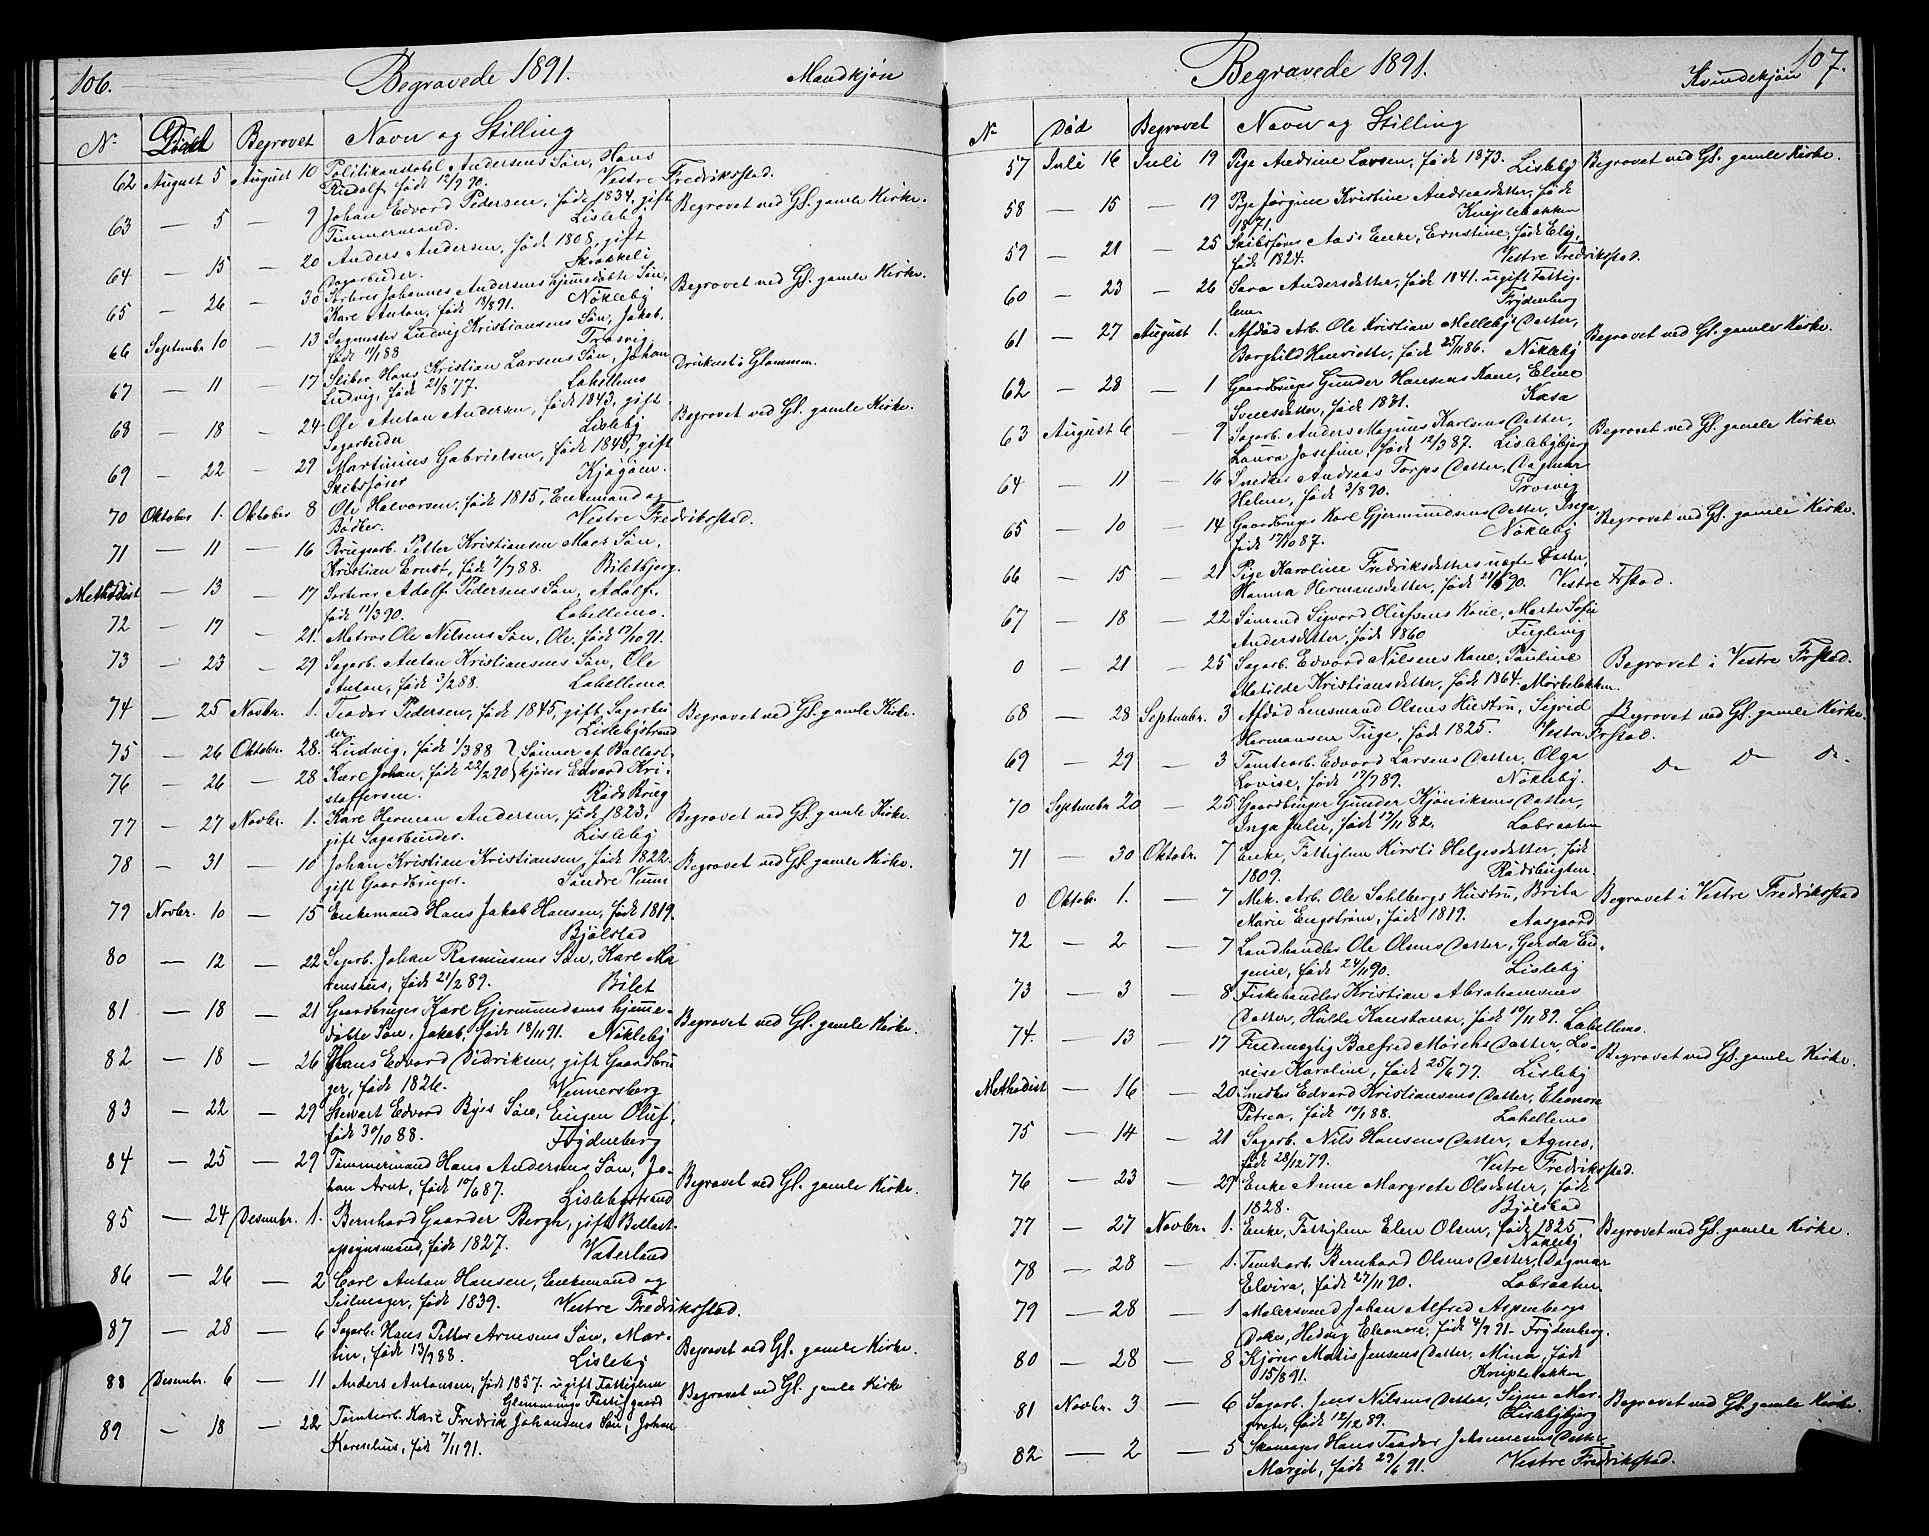 106.
Begravede 1891.
Mandkjøn
No
Død
Begravet
Navn og Stilling
62 August 5 August 10 Politikonstabel Andersens Søn, Hans
Rudolf, født 12/9 90. Vestre Fredriksstad.
63 — 5 — 9 Johan Edvard Pedersen, født 1834, gift Begravet ved Gl. gamle Kirke.
Tømmermand. Lisleby
64 — 15 — 20 Anders Andersen, født 1808, gift
Dagarbeider. Skrokkeli
65 — 26 — 30 Arbrer Johannes Andersens hjemmedøbte Søn, Begravet ved Gl. gamle Kirke.
Karl Anton, født 13/8 91. Nøkleby
66 Septembr 10 — 13 Sagmester Ludvig Kristiansens Søn, Jakob,
født 11/1 88 Trosvig
67 — 11 — 17 Sliber Hans Kristian Larsens Søn, Johan Druknet i Glommen.
Ludvig, født 21/8 77. Lahellemo
68 — 18 — 24 Ole Anton Andersen, født 1843, gift Begravet ved Gl. gamle Kirke.
Sagarbeider Lisleby
69 — 22 — 29 Martinius Gabrielsen, født 1848, gift
Skibsfører Kjøgøen.
70 Oktober 1. Oktober 8 Ole Halvorsen, født 1815, Enkemand og
Bødker. Vestre Fredriksstad.
71 — 11 — 16 Brugsarb. Petter Kristiansen Moes Søn,
Kristian Ernst, født 7/7 88. Biletbjerg.
Methodist — 13 — 17 Arbrer Adolf Pedersens Søn, Adolf,
født 11/3 90. Lahellemo.
72 — 17 — 21. Matros Ole Nilsens Søn, Ole, født 17/10 91.
73 — 23 — 29 Sagarb. Anton Kristiansens Søn, Ole
Anton, født 3/2 88. Lahellemo.
74 — 25 Novbr. 1. Teodor Pedersen, født 1845, gift Sagarbei Begravet ved Gl. gamle Kirke.
der. Lislebystrand
75 — 26 Oktobr. 28. Ludvig, født 1/3 88 } Sønner af Ballast-
76 — 26 — 28 Karl Johan, født 22/2 90 } kjører Edvard Kri-
stoffersen. Råds Brug
77 — 27 Novbr. 1. Karl Herman Andersen, født 1823, Begravet ved Gl. gamle Kirke.
gift Sagarbeider. Lisleby
78 — 31 — 10 Johan Kristian Kristiansen, født 1822. Begravet ved Gl. gamle Kirke.
gift Gaardbruger. Søndre Vium
79 Novbr. 10 — 15 Enkemand Hans Jakob Hansen, født 1819.
Bjølstad
80 — 12 — 22 Sagarb. Johan Rasmusens Søn, Karl Ma
rensius, født 21/2 89. Bilet
81 — 18 — 21 Gaardbruger Karl Gjermundsens hjemme-
døbte Søn, Jakob, født 18/11 91. Nøkleby Begravet ved Gl. gamle Kirke.
82 — 18 — 26 Hans Edvard Didriksen, gift Gaardbru
ger, født 1826. Vennersberg
83 — 22 — 29 Stewart Edvard Byes Søn, Eugen Oluf,
født 30/10 88. Frydenberg
84 — 25 — 29 Tømmermand Hans Andersens Søn, Jo-
han Arnt, født 10/6 87. Lislebystrand Begravet ved Gl. gamle Kirke.
85 — 24 Desembr. 1. Bernhard Gaarder Bergh, gift Ballast-
opsynsmand, født 1827. Vaterland
86 — 26 — 2 Carl Anton Hansen, Enkemand og
Seilmager, født 1839. Vestre Fredriksstad.
87 — 28 — 6 Sagarb. Hans Petter Arnesens Søn, Mar-
tin, født 13/9 88. Lisleby Begravet ved Gl. gamle Kirke.
88 Desembr. 6 — 11 Anders Antonsen, født 1857. ugift Fattiglem Begravet ved Gl. gamle Kirke
Glemminge Fattiggaard
89 — 18 — 22 Tømtearb. Karl Fredrik Johansens Søn, Johan
Kornelius, født 7/11 91.
107.
Begravede 1891.
Kvindekjøn
No
Død
Begravet
Navn og Stilling
57 Juli 16 Juli 19 Pige Andrine Larsen, født 1873. Lisleby Begravet ved Gl. gamle Kirke.
58 — 15 — 19 Pige Jørgine Kristine Andreasdatter, født
1871. Kniplebakken
59 — 21 — 25 Skibsførers Aass Enke, Ernstine, født Elig,
født 1824. Vestre Fredriksstad.
60 — 23 — 26 Sara Andersdatter, født 1841. ugift Fattig-
lem. Frydenberg
61 — 27 August 1. Afdød Arb. Ole Kristian Mellebys Datter,
Borghild Henriette, født 25/11 86. Nøkleby Begravet ved Gl. gamle Kirke.
62 — 28 — 1 Gaardbrugs Gunder Hansens Kone, Elene
Svensdatter, født 1831. Kasa
63 August 6 — 9 Sagarb. Anders Magnus Karlsens Datter, Begravet ved Gl. gamle Kirke
Laura Josefine, født 12/3 87. Lislebybjerg
64 — 11 — 16 Snedker Andreas Torps Datter, Dagmar
Helene, født 3/8 90. Trosvig
65 — 10 — 14 Gaardbrugs Karl Gjermundsens Datter, Inga, Begravet ved Gl. gamle Kirke.
født 17/10 87. Nøkleby
66 — 15 — 21 Pige Karoline Fredriksdatters uægte Datter,
Hanna Hermansdatter, født 21/6 90. Vestre Frstad.
67 — 18 — 22 Sømand Sigvard Olufsens Kone, Marte Sofie
Andersdatter, født 1860 Fuglevig
0 — 21 — 25 Sagarb. Edvard Nilsens Kone, Pauline Begravet i Vestre Frstad.
Matilde Kristiansdatter, født 1864. Mørkelokken.
68 — 28 Septembr. 3 Afdød Lensmand Olsens Hustru, Sigrid Begravet ved Gl. gamle Kirke.
Hermansen Tuge, født 1825. Vestre Frstad.
69 — 29 — 3 Tomtearb. Edvard Larsens Datter, Olga
Lovise, født 17/9 89. Nøkleby. Do Do Do
70 Septembr 20 — 25 Gaardbruger Gunder Kjøniksens Datter,
Inga Julie, født 17/11 82. Labraaten
71 — 30 Oktobr. 7 Enke, Fattiglem Kirsti Helgesdatter, født
1809. Rådsbugten
0 Oktobr. 1. — 7 Mek. Arb. Ole Sahlbergs Hustru, Brita Begravet i Vestre Fredriksstad
Marie Engstrøm, født 1819. Aasgaard
72 — 2 — 7 Landhandler Ole Olsens Datter, Gerda Eu-
genie, født 24/11 90. Lisleby
73 — 3 — 8 Fiskehandler Kristian Abrahamsens
Datter, Hulda Konstanse, født 10/11 89. Lahellemo.
74. — 13 — 17 Fuldmægtig Balfred Mørchs Datter, Lo-
vise Karoline, født 25/6 77. Lisleby Begravet ved Gl. gamle Kirke.
Methodist — 16 — 20 Snedker Edvard Kristiansens Datter, Eleonora
Petrea, født 10/1 88. Lahellemo
75 — 14 — 21 Sagarb. Nils Hansens Datter, Agnes,
født 28/12 79. Vestre Fredriksstad.
76 — 23 — 29 Enke Anne Margrete Olsdatter, født
1828. Bjølstad
77 — 27 Novbr. 1. Enke, Fattiglem Elen Olsen, født 1825 Begravet ved Gl. gamle Kirke.
Nøkleby
78 — 28 — 1. Tomtearb. Bernhard Olsens Datter, Dagmar
Elvira, født 27/11 90. Labraaten.
79 — 28 — 1 Malersvend Johan Alfred Aspenbergs
Datter, Hedvig Eleonore, født 4/9 91. Frydenberg.
80 — 28 — 8 Kjører Matis Jensens Datter, Mina, født
15/8 91. Kniplebakken
81 Novbr. 3 — 6 Sagarb. Jens Nilsens Datter, Signe Mar- Begravet ved Gl. gamle Kirke.
grete, født 12/12 89. Lislebybjerg
82 — 2 — 5 Skomager Hans Teodor Johannesens Datter
Margit, født 29/6 91. Vestre Fredriksstad.